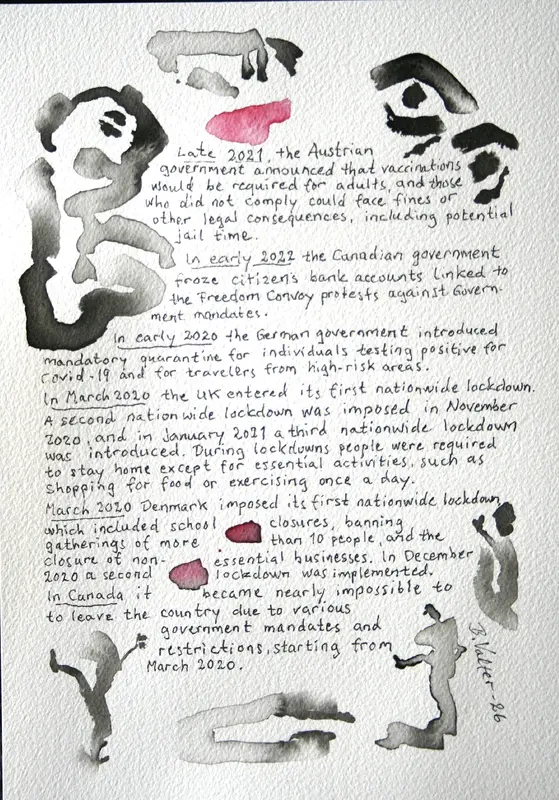 Late 2021, the Austrian
government announced that vaccinations
would be required for adults, and those
who did not comply could face fines or
other legal consequences, including potential
jail time.
In early 2022 the Canadian government
froze citizen's bank accounts linked to
the Freedom Convoy protests against Govern-
ment mandates.
In early 2020 the German government introduced
mandatory quarantine for individuals testing positive for
Covid-19 and for travelers from high-risk areas.
In March 2020 the UK entered its first nationwide lockdown.
A second nationwide lockdown was imposed in November
2020, and in January 2021 a third nationwide lockdown
was introduced. During lockdowns people were required
to stay home except for essential activities, such as
shopping for food or exercising once a day.
March 2020 Denmark imposed its first nationwide lockdown,
which included school closures, banning
gatherings of more than 10 people, and the
closure of non-essential businesses. In December
2020 a second lockdown was implemented.
In Canada it became nearly impossible to
to leave the country due to various
government mandates and
restrictions, starting from
March 2020.
B. Valter-26